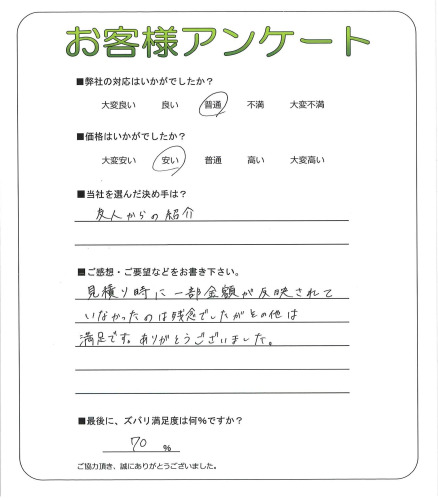 お客様アンケート
■弊社の対応はいかがでしたか?
大変良い 良い 普通 不満 大変不満
■価格はいかがでしたか?
大変安い 安い 普通 高い 大変高い
■当社を選んだ決め手は?
友人からの紹介
■ご感想・ご要望などをお書き下さい。
見積り時に一部金額が反映されて
いなかったのは残念でしたがその他は
満足です。ありがとうございました。
■最後に、ズバリ満足度は何%ですか?
70 %
ご協力頂き、誠にありがとうございました。